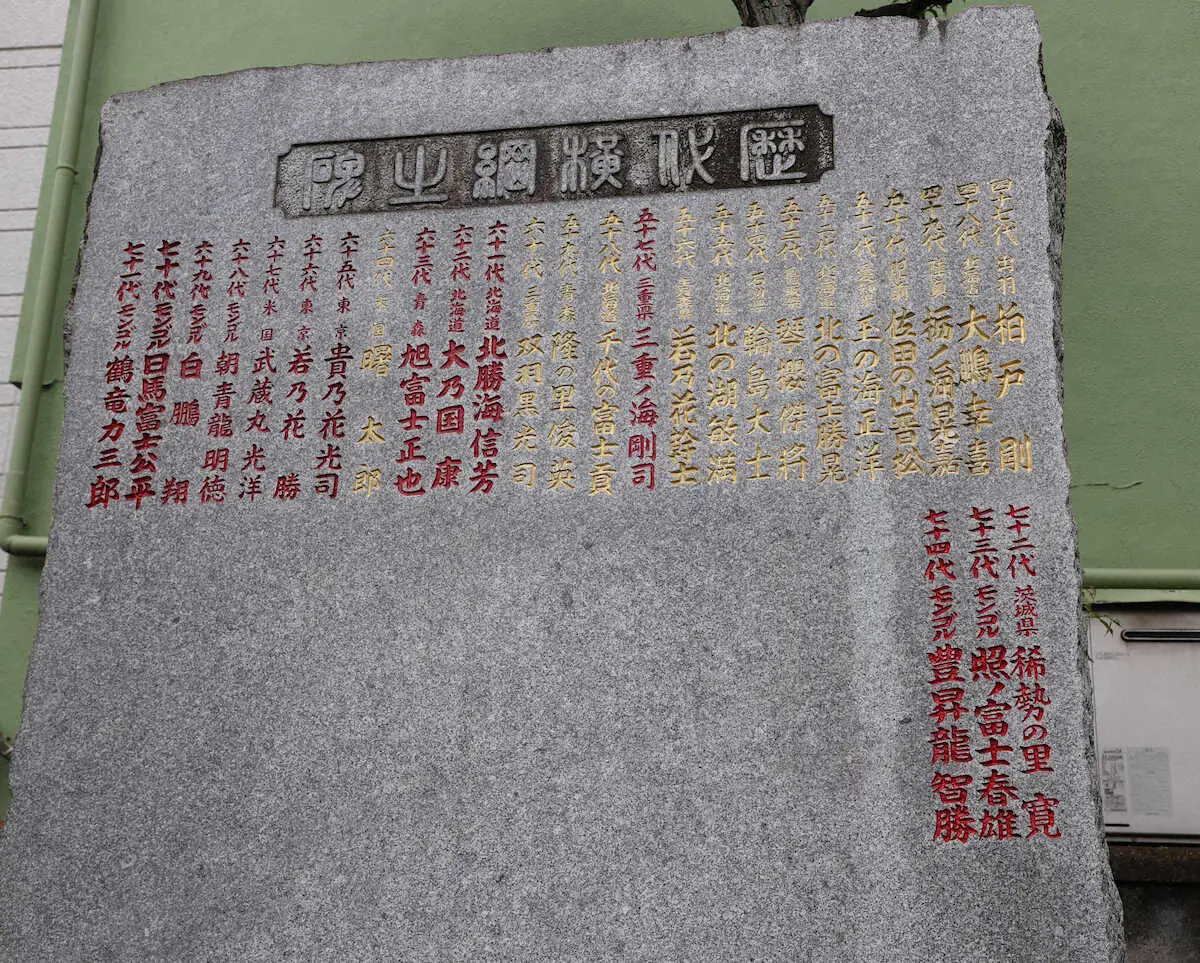 歴代横綱之碑
四十七代 出羽 柏戸 剛
四十八代 北海道 大鵬幸喜
四十九代 陸奥 栃ノ海晃嘉
五十代 肥前 佐田の山晋松
五十一代 愛知県 玉の海正洋
五十二代 北海道 北の富士勝晃
五十三代 鳥取県 琴櫻傑将
五十四代 石川県 輪島大士
五十五代 北海道 北の湖敏満
五十六代 青森県 若乃花幹士
五十七代 三重県 三重ノ海剛司
五十八代 北海道 千代の富士貢
五十九代 青森 隆の里俊英
六十代 三重県 双羽黒光司
六十一代 北海道 北勝海信芳
六十二代 北海道 大乃国 康
六十三代 青森 旭富士正也
六十四代 米国 曙 太郎
六十五代 東京 貴乃花光司
六十六代 東京 若乃花 勝
六十七代 米国 武蔵丸光洋
六十八代 モンゴル 朝青龍明徳
六十九代 モンゴル 白鵬 翔
七十代 モンゴル 日馬富士公平
七十一代 モンゴル 鶴竜力三郎
七十二代 茨城県 稀勢の里 寛
七十三代 モンゴル 照ノ富士春雄
七十四代 モンゴル 豊昇龍智勝